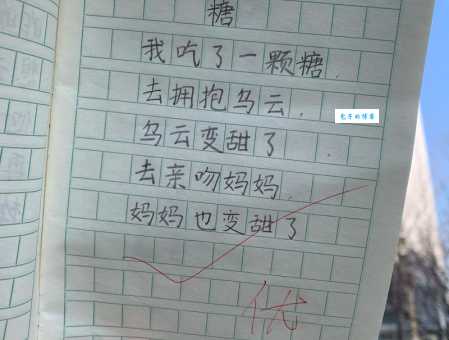 糖
我吃了一颗糖.
去拥抱乌云.
乌云变甜了.
去亲吻妈妈.
妈妈也变甜了
优